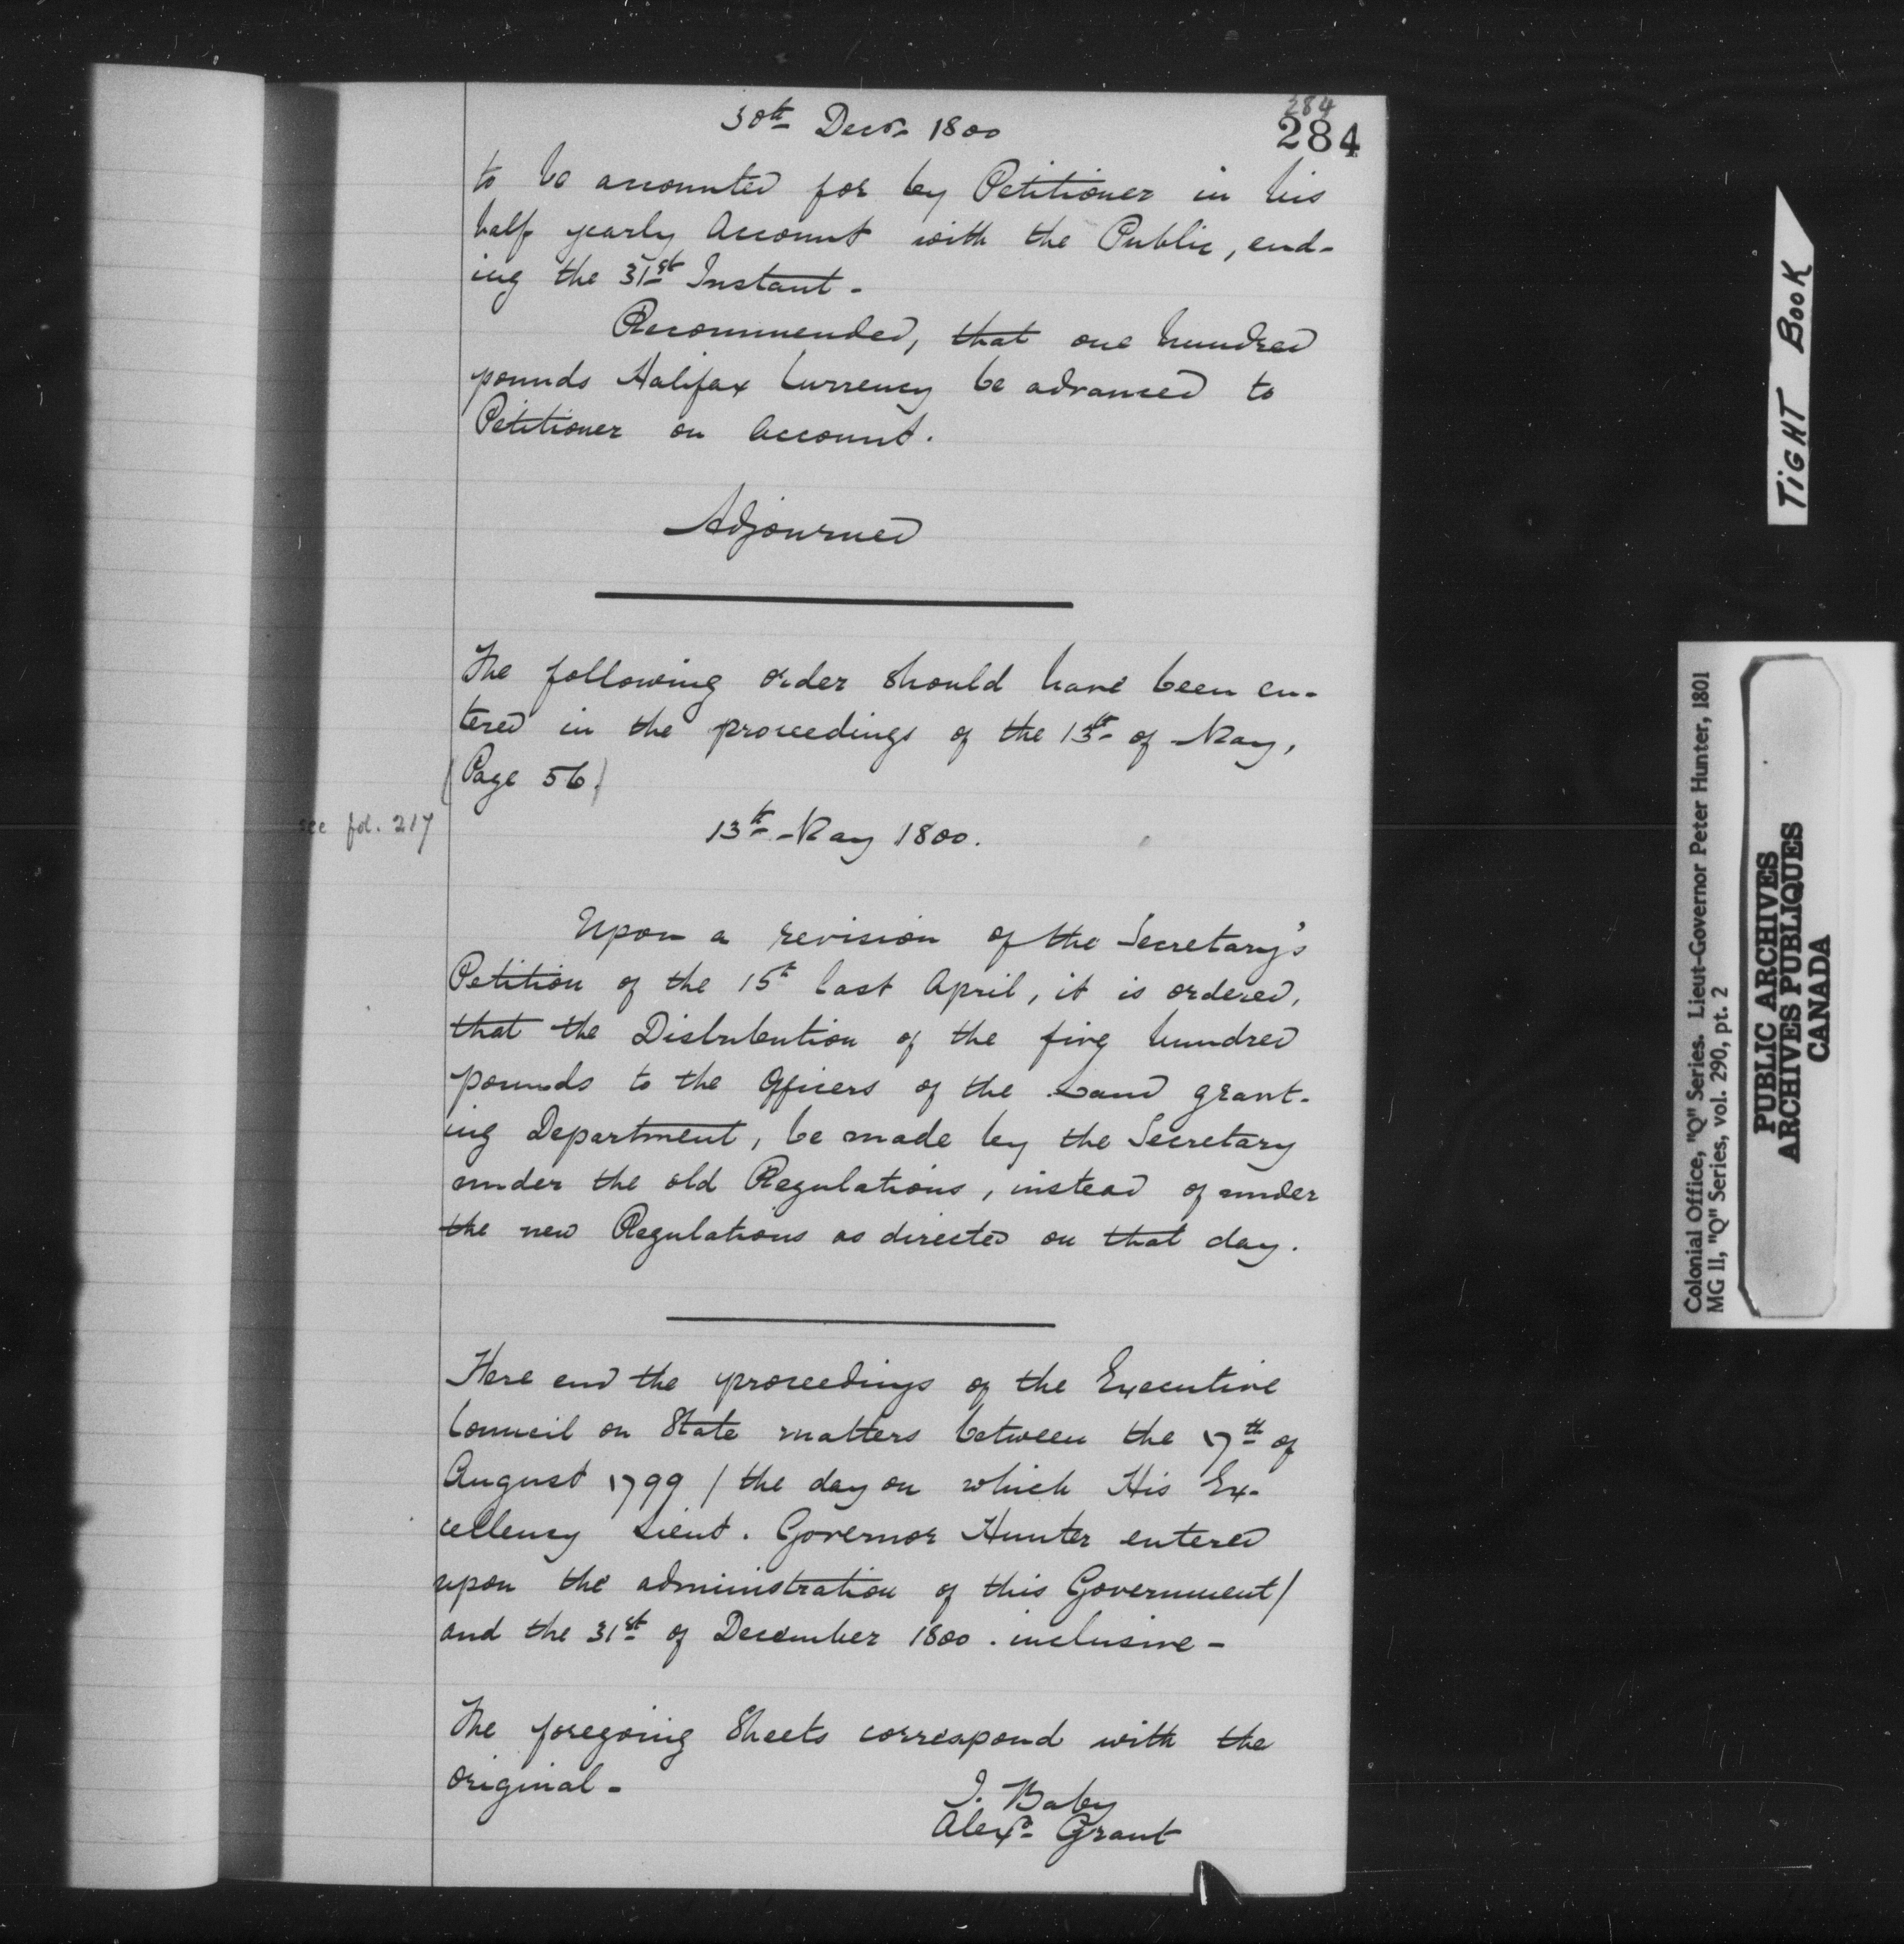 284
30th Decr. 1800
284
to be accounted for by Petitioner in his
half yearly Account with the Public, end-
ing the 31st Instant -
Recommended, that one hundred
pounds Halifax Currency be advanced to
Petitioner on Account.
Adjourned
The following order should have been en-
tered in the proceedings of the 13th of May,
(Page 56)
see fol. 217
13th May 1800.
Upon a revision of the Secretary's
Petition of the 15th last April, it is ordered,
that the Distribution of the five hundred
pounds to the Officers of the Land grant-
ing Department, be made by the Secretary
under the old Regulations, instead of under
the new Regulations as directed on that day.
Here end the proceedings of the Executive
Council on State matters between the 17th of
August 1799 / the day on which His Ex-
cellency Lieut. Governor Hunter entered
upon the administration of this Government /
and the 31st of December 1800. inclusive -
The foregoing Sheets correspond with the
original -
J. Baby
Alexr. Grant
TIGHT BOOK
Colonial Office, "Q" Series. Lieut-Governor Peter Hunter, 1801
MG 11, "Q" Series, vol. 290, pt. 2
PUBLIC ARCHIVES
ARCHIVES PUBLIQUES
CANADA